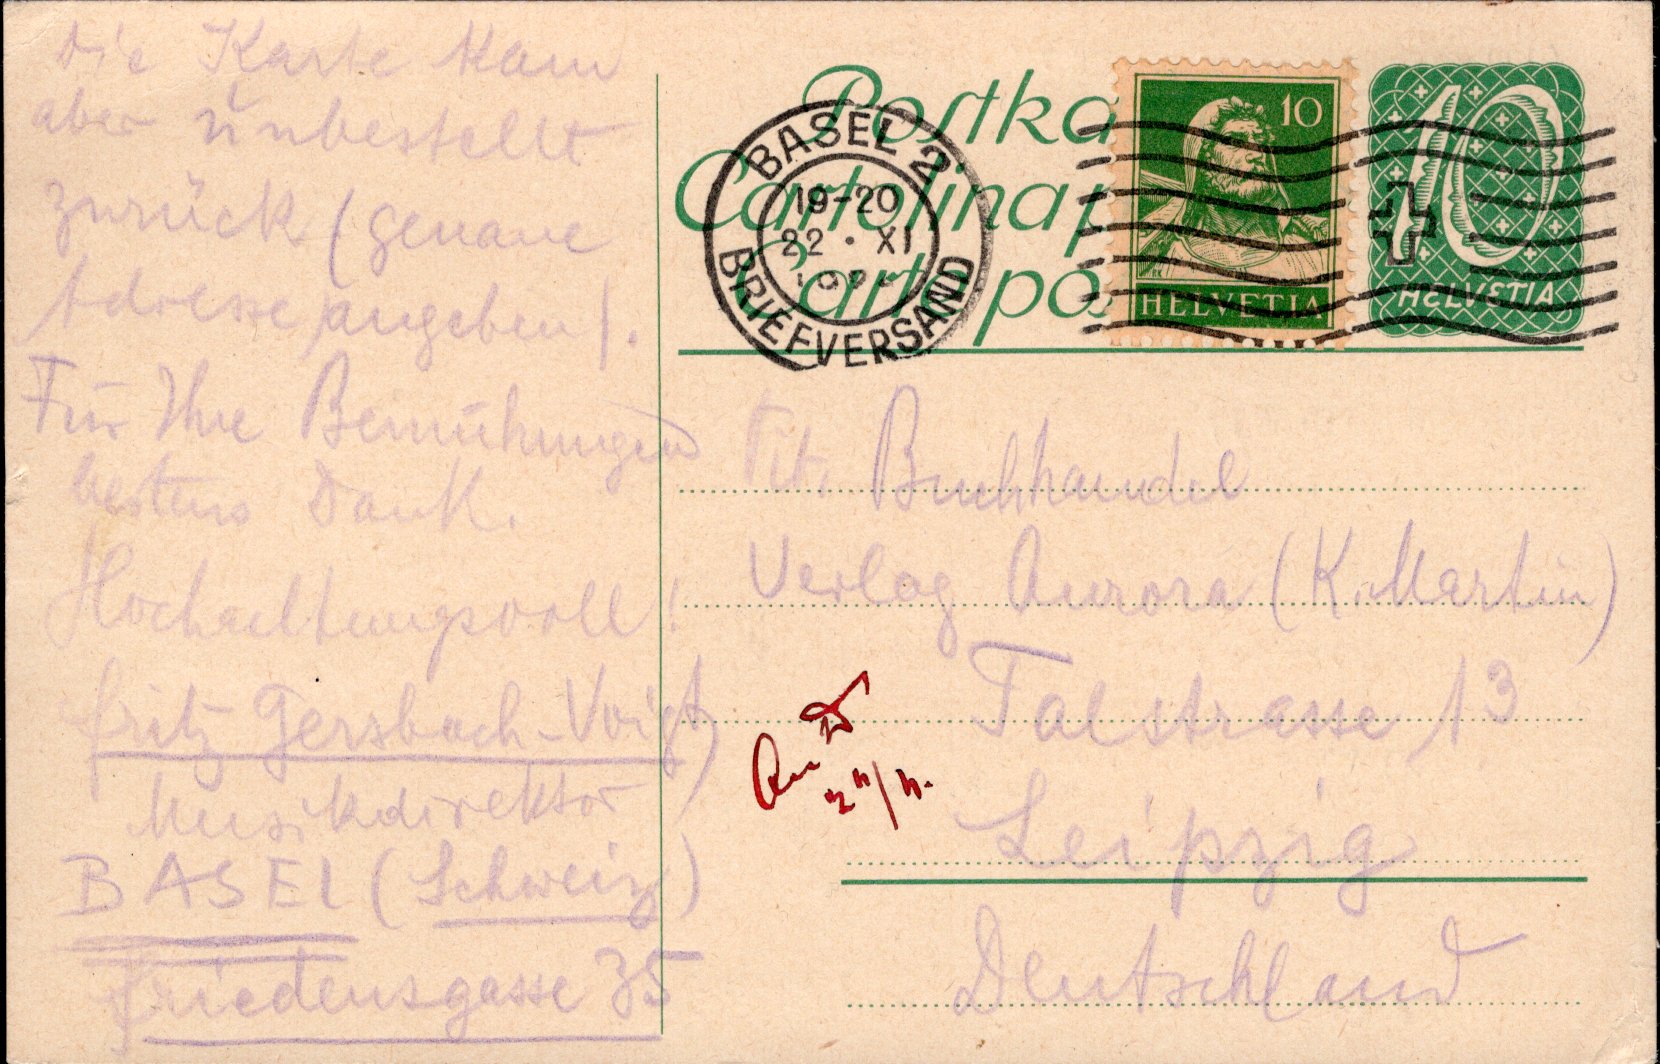 Die Karte kam
aber unbestellt
zurück (genaue
Adresse angeben).
Für Ihre Bemühungen
bestens Dank.
Hochachtungsvoll!
Fritz Gersbach-Voigt
Musikdirektor
BASEL (Schweiz)
Friedensgasse 35
Postka
Cartolina p
Carte pos
BASEL 2
19-20
22 · XI
BRIEFVERSAND
10
HELVETIA
10
HELVETIA
Tit. Buchhandel
Verlag Aurora (K. Martin)
Talstrasse 13
Leipzig
Deutschland